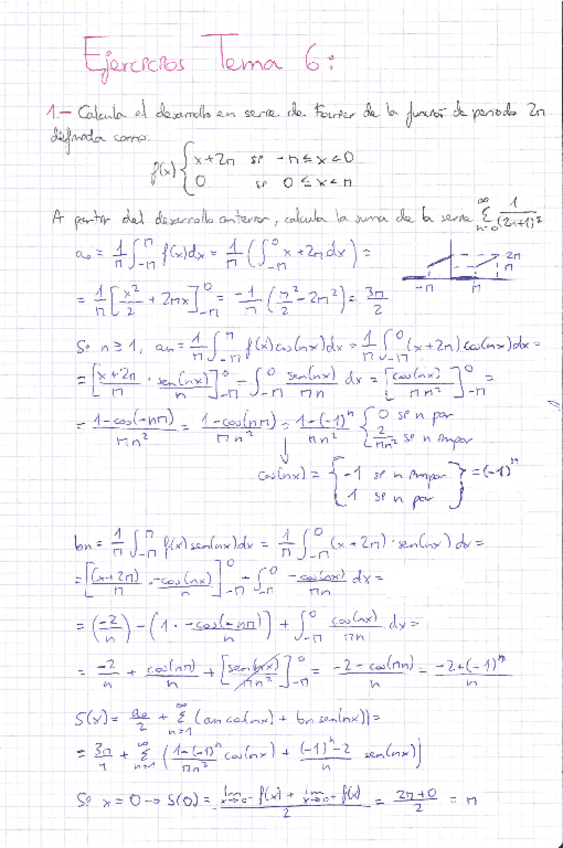 Ejercicios Tema 6:
1.- Calcula el desarrollo en serie de Fourier de la función de periodo 2π
definida como:
f(x) { x+2π si -π≤x<0
0 si 0≤x<π
A partir del desarrollo anterior, calcula la suma de la serie ∑_{n=0}^{∞} 1/(2n+1)²
a₀ = 1/π ∫_{-π}^{π} f(x)dx = 1/π (∫_{-π}^{0} x+2π dx) =
2π
π
-π π
= 1/π [x²/2 + 2πx]_{-π}^{0} = -1/π (π²/2 - 2π²) = 3π/2
Si n≥1, an = 1/π ∫_{-π}^{π} f(x)cos(nx)dx = 1/π ∫_{-π}^{0} (x+2π)cos(nx)dx =
= [x+2π/π · sen(nx)/n]_{-π}^{0} - ∫_{-π}^{0} sen(nx)/πn dx = [cos(nx)/πn²]_{-π}^{0} =
= 1-cos(-nπ)/πn² = 1-cos(nπ)/πn² = 1-(-1)ⁿ/πn² { 0 si n par
2/πn² si n impar
cos(nx) = { -1 si n impar
1 si n par } = (-1)ⁿ
bn = 1/π ∫_{-π}^{π} f(x)sen(nx)dx = 1/π ∫_{-π}^{0} (x+2π)·sen(nx)dx =
= [(x+2π)/π · -cos(nx)/n]_{-π}^{0} - ∫_{-π}^{0} -cos(nx)/πn dx =
= (-2/n) - (1·-cos(-nπ)/n) + ∫_{-π}^{0} cos(nx)/πn dx =
= -2/n + cos(nπ)/n + [sen(nx)/πn²]_{-π}^{0} = -2-cos(πn)/n = -2+(-1)ⁿ/n
S(x) = a₀/2 + ∑_{n=1}^{∞} (an cos(nx) + bn sen(nx)) =
= 3π/4 + ∑_{n=1}^{∞} (1-(-1)ⁿ/πn² cos(nx) + (-1)ⁿ-2/n sen(nx))
Si x=0 → S(0) = lim_{x→0⁻} f(x) + lim_{x→0⁺} f(x)/2 = 2π+0/2 = π